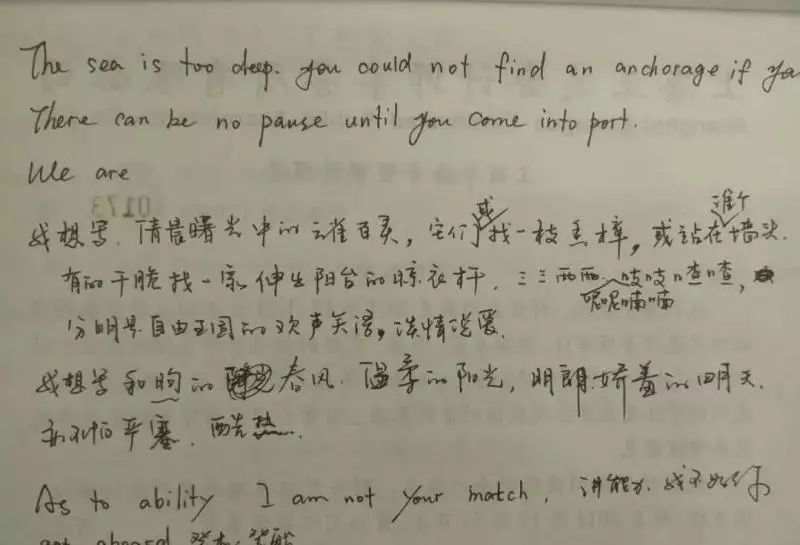 The sea is too deep. you could not find an anchorage if you
There can be no pause until you come into port.
We are
0173
我想写. 清晨曙光中的云雀百灵, 它们或找一枝香樟, 或站在谁个墙头.
有的干脆找一家伸出阳台的晾衣杆, 三三两两. 吱吱喳喳, 呢呢喃喃
分明是自由王国的欢声笑语, 谈情说爱.
我想写和煦的春风. 温柔的阳光, 明朗娇羞的四月天.
而不怕严寒. 酷热.
As to ability I am not your match, 讲能力, 我不如你
get aboard 登机